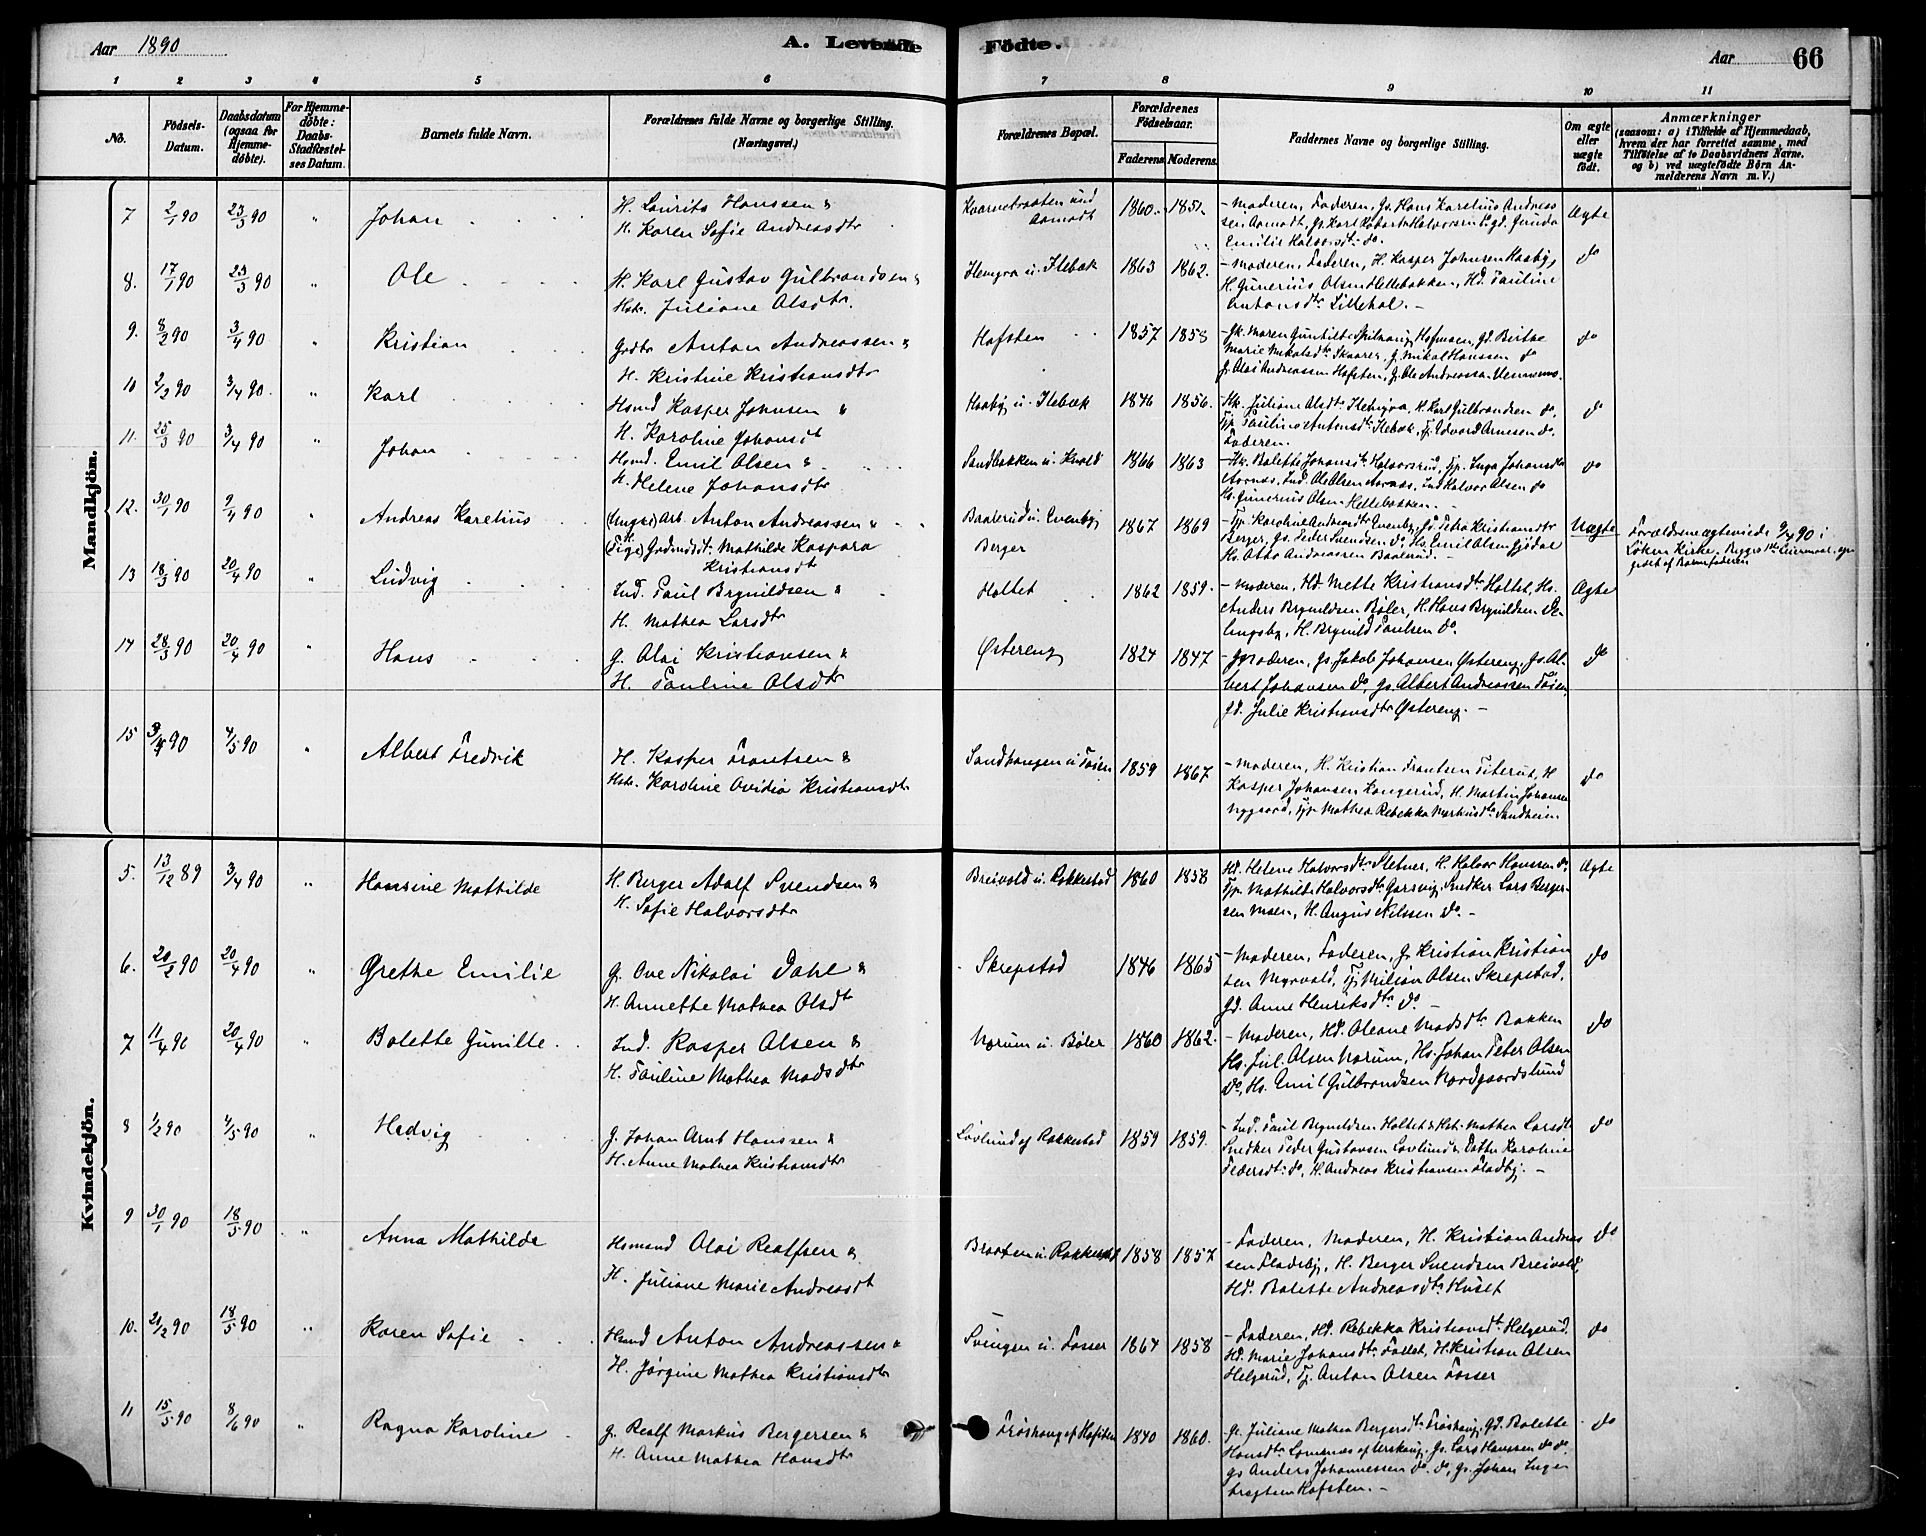 Aar 1890
A. Levende Fødte.
Aar 66
1 2 3 4 5 6 7 8 9 10 11
No.
Fødsels-Datum.
Daabsdatum (ogsaa for Hjemme-døbte).
For Hjemme-døbte: Daabs-Stadfæstel-ses Datum.
Barnets fulde Navn.
Forældrenes fulde Navne og borgerlige Stilling. (Næringsvei.)
Forældrenes Bopæl.
Forældrenes Fødselsaar.
Faderens. Moderens.
Faddernes Navne og borgerlige Stilling.
Om ægte eller uægte født.
Anmærkninger (saasom: a) i Tilfælde af Hjemmedaab, hvem der har forrettet samme, med Tilføielse af to Daabsvidners Navne, og b) ved uægtefødte Børn An-melderens Navn m. V.)
Mandkjön.
7 2/1 90 23/3 90 " Johan
H. Laurits Hanssen &
H. Karen Sofie Andreasdtr
Kvarnebraaten und Aamodt 1860 1851
- Moderen, Faderen, Gs. Hans Karelius Andreas
sen Aamodt, Gs. Karl Robert Halvorsen, Pigd. Gunda
Emilie Halvorsdtr do. Ægte
8. 17/1 90 23/3 90 " Ole
H. Karl Gustav Gulbrandsen &
Hstr. Juliane Olsdtr.
Ilengen u. Ilebæk 1863 1862.
- Moderen, Faderen, H. Kasper Johnsen Kaasby,
H. Gunerius Olsen Hellebakken, Hd. Pauline
Antonsdtr Lillehol. - do
9. 8/2 90 3/4 90 " Kristian
Grdbr Anton Andreassen &
H. Kristine Kristiansdtr
Hofsten 1857 1858
Marie Mikalsdtr Skaarer, G. Mikal Hanssen do
G. Olai Andreassen Hofsten, G. Ole Andreassen do
10 2/3 90 3/4 90. " Karl
Hsmd Kasper Johnsen &
H. Karoline Johansdt
Kaasby u. Ilebæk 1846 1856.
Hk. Juliane Olsdtr Ilengen, H. Karl Gulbrandsen do,
Tjp. Pauline Antonsdtr Ilebæk, Tj. Edvard Arnesen do,
Faderen. do
11. 25/3 90 3/4 90 " Johan
Hsmd. Emil Olsen &
H. Helene Johansdtr
Sandbakken u. Krold 1866 1863
- Hk. Bolette Johansdtr Halvorsrud, Tjp. Inga Johansdtr
Aarnæs, Ind. Ole Olsen Aarnæs, Ind Halvor Olsen do
Hs. Gunerius Olsen Hellebakken. - do
12. 30/1 90 9/4 90 " Andreas Karelius
(Ungkl) Arb. Anton Andreassen &
(Pige) Gaardmdsdt. Mathilde Kaspara
Kristiansdt
Baalerud u. Evenby
Berger 1867 1869
- Tjp. Karoline Andreasdtr Evenby, Gd. Petra Kristiansdtr
Berger, Gs. Peder Svendsen do, Hs. Emil Olsen Gjødal
Hs. Otto Andreassen Baalerud. - Uægte
Forældrene ægteviede 9/4 90 i
Løken Kirke. Begges 1ste Leiermaal, opgivet af Barnefaderen
13 18/3 90 20/4 90 " Ludvig
Ind. Paul Brynildsen &
H. Mathea Larsdtr
Holtet 1862 1859.
- Moderen, Hd. Mette Kristiansdtr Holtet, Hs.
Anders Brynildsen Bøler, H. Hans Brynildsen De-
lingsby, H. Brynild Paulsen do. Ægte
14 28/3 90 20/4 90 " Hans
G. Olai Kristiansen &
H. Pauline Olsdtr
Østereng 1824 1847
- Moderen, Gs. Jakob Johansen Østereng, Gs. Al-
bert Johansen do, Gs. Albert Andreassen Tøien,
Gd. Julie Kristiansdtr Østereng. - do
15 3/4 90 4/5 90 " Albert Fredrik
H. Kasper Frantsen &
Hstr. Karoline Ovidia Kristiansdtr
Sandhaugen u. Tøien 1859 1867
- Moderen, H. Kristian Frantsen Titerud, H
Kasper Johansen Haugerud, H. Martin Johansen
Nygaard, Tjp. Mathea Rebekka Markusdtr Sandheim do
Kvindekjön.
5. 13/12 89 3/4 90 " Hansine Mathilde
H. Berger Adolf Svendsen &
H. Sofie Halvorsdtr
Breivold u. Rakkestad 1860 1858
Hd. Helene Halvorsdtr Sletner, H. Halvor Hanssen do,
Tjp. Mathilde Halvorsdtr Garsvig, Snedker Lars Berger-
sen Moen, H. August Nilssen do. - Ægte
6. 20/2 90 20/4 90 " Grethe Emilie
G. Ove Nikolai Dahl &
H. Annette Mathea Olsd
Skrepstad 1846 1865
- Moderen, Faderen, G. Kristian Kristian
sen Myrvold, Tj. Milian Olsen Skrepstad,
Gd. Anne Henriksdtr do - do
7 11/4 90 20/4 90 " Bolette Gunille
Ind. Kasper Olsen &
H. Pauline Mathea Madsdtr
Norum u. Bøler 1860 1862.
- Moderen, Hd. Oleane Madsdtr Bakken
Hs. Jul. Olsen Norum, Hs. Johan Peter Olsen
do, Hs. Emil Gulbrandsen Nordgaardslund do
8 1/2 90 4/5 90 " Hedvig
G. Johan Arnt Hanssen &
H. Anne Mathea Kristiansdtr
Lovlund af Rakkestad 1859 1859.
- Ind. Paul Brynildsen Holtet & Hst. Mathea Larsdtr
Snedker Peder Gustavsen Lovlund & Datter Karoline
Pedersdt. do, H. Andreas Kristiansen Fladby. - do
9 30/1 90 18/5 90. " Anna Mathilde
Hsmand Olai Realfsen &
H. Juliane Marie Andreasdt
Braaten u. Rakkestad 1858 1857
- Faderen, Moderen, H. Kristian Andreas
sen Fladeby, H. Berger Svendsen Breivold,
Hd. Bolette Andreasdtr Huset do
10. 21/2 90 18/5 90 " Karen Sofie
Hsmd Anton Andreassen &
H. Jørgine Mathea Kristiansdtr
Svingen u. Fosser 1864 1858
- Faderen, Hd. Rebekka Kristiansdtr Helgerud
Hd. Marie Johansdtr Follet, H. Kristian Olsen
Helgerud, Tj. Anton Olsen Fosser do
11 15/5 90 8/6 90 " Ragna Karoline
G. Realf Markus Bergersen &
H. Anne Mathea Hansdtr
Frøshaug af Hofsten 1840 1860.
Gk. Juliane Mathea Bergersdtr Frøshaug, Gd. Bolette
Hansdtr Lomnæs af Urskoug, Gs. Lars Hanssen do do,
Gs Anders Johannessen do do, Gs. Johan Inge-
bregtsen Hofsten. - do